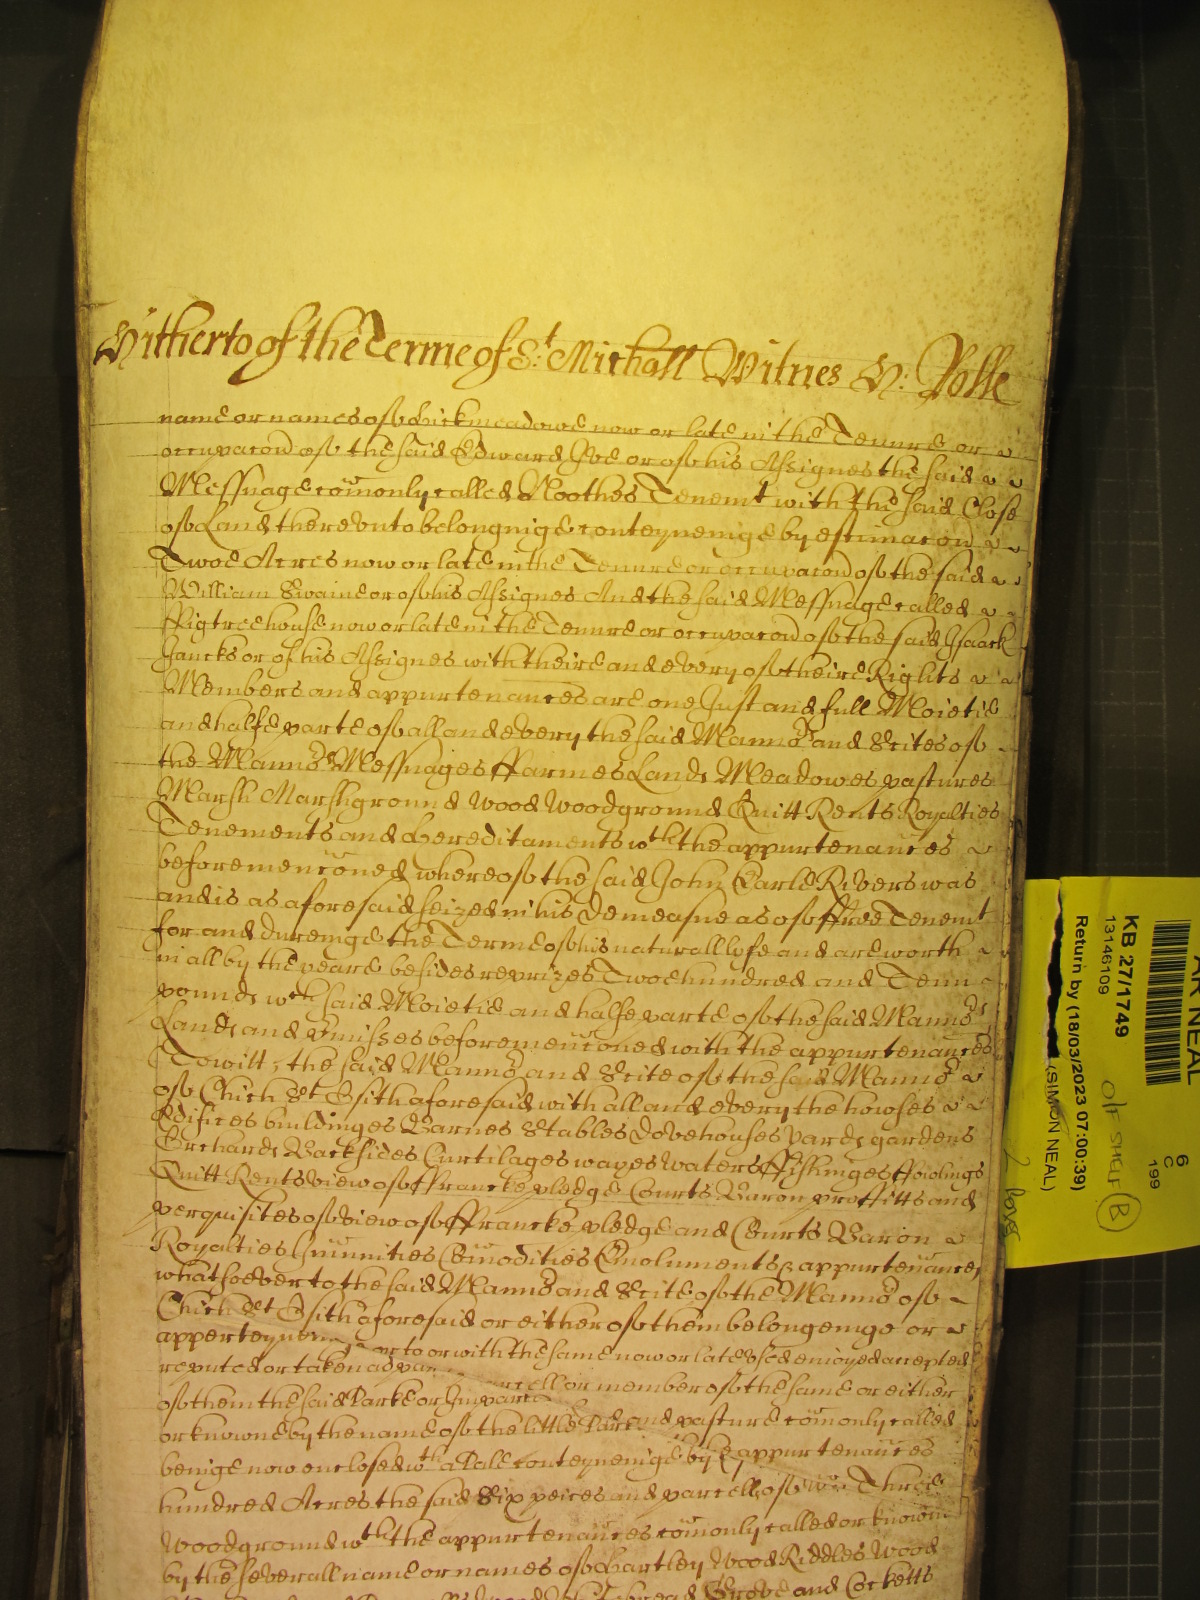 Hitherto of the Terme of St: Michaell Witnes H: Rolle
name or names of Lickmeadowe now or late in the Tenure or
occupacon of the said Edward Ive or of his Assignes the said
Messuage comonly called Noothes Tenemt with the said Close
of Land therevnto belonginge conteyneinge by estimacon
Twoe Acres now or late in the Tenure or occupacon of the said
William Swaine or of his Assignes And the said Messuage called
ffigtreehouse now or late in the Tenure or occupacon of the said Isaack
Jancks or of his Assignes with theire and every of theire Rights
Members and appurtenances are one Just and full Moietie
and halfe parte of all and every the said Mannors and Scites of
the Mannors Messuages ffarmes Lands Meadowes pastures
Marsh Marshground Wood Woodground Quitt Rents Royalties
Tenements and Hereditaments wth the appurtenances
beforemencioned whereof the said John Earle Rivers was
and is as aforesaid seized in his demeasne as of ffree Tenemt
for and dureinge the Terme of his naturall lyfe and are worth
in all by the yeare besides reprizes Twoe hundred and Tenn
pounds wch said Moietie and halfe parte of the said Mannors
Lands and premisses beforemencioned with the appurtenances
To witt, the said Mannor and Scite of the said Mannor
of Chich St Osith aforesaid with all and every the howses
Edifices buildinges Barnes Stables dovehouses yards gardens
Orchards Backsides Curtilages wayes Waters ffishinges ffowlings
Quitt Rents view of ffrancke pledge Courts Baron proffitts and
perquisites of view of ffrancke pledge and Courts Baron
Royalties Imunities Comodities Emoluments & appurtenances
whatsoever to the said Mannor and Scite of the Mannor of
Chich St Osith aforesaid or either of them belongeinge or
apperteyneinge or to or with the same now or late vsed enioyed accepted
reputed or taken as parcell or member of the same or either
of them the said Parke or Imparked and pasture comonly called
or knowne by the name of the little Parke
benige now enclosed wth a Pale conteyneinge by appurtenances
hundred Acres the said Six peices and parcells of Three
Woodground wth the appurtenances comonly called or knowne
by the severall name or names of Hartley Wood Riddles Wood
Grove and Cocketts
AR NEAL
KB 27/1749
13146109
Return by (18/03/2023 07:00:39)
(SIMON NEAL)
6
C
199
O/F SHELF B
2 boxes